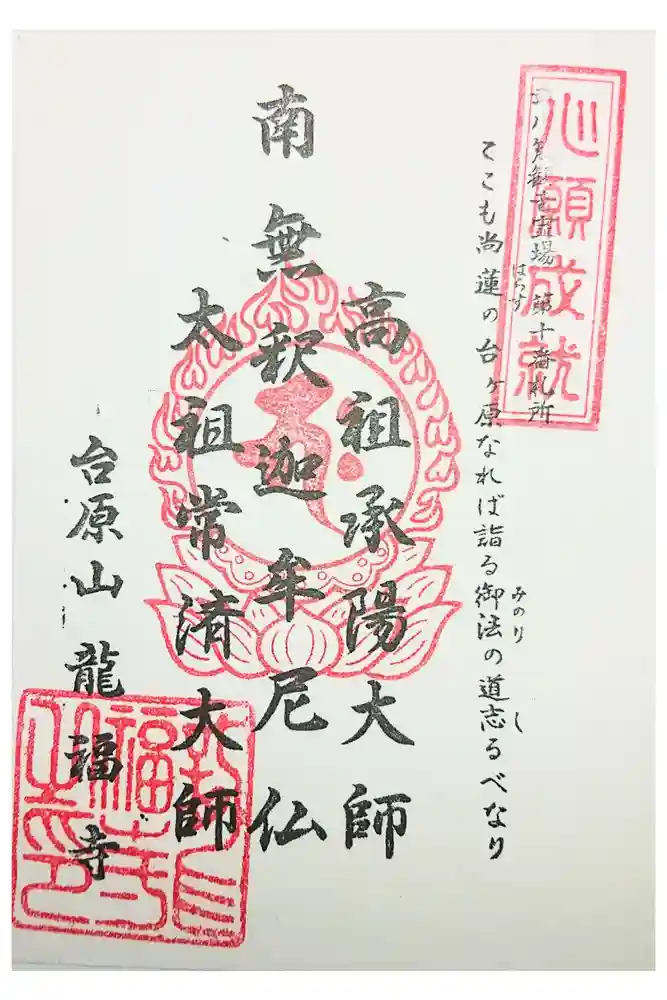 心願成就
観音霊場 第十番札所
ここも尚蓮の台ヶ原なれば詣る御法の道志るべなり
はらす
みのり
し
高祖承陽大師
南無釈迦牟尼仏
太祖常済大師
台原山 龍福寺